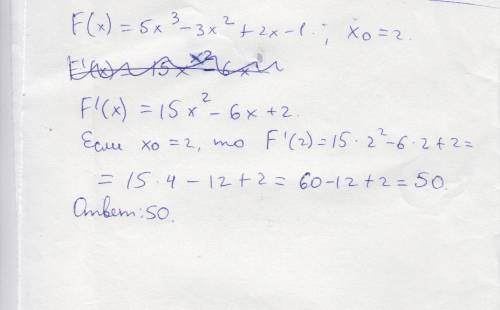 F(x) = 5x³ - 3x² + 2x - 1. ; x₀ = 2.
F'(x) = 15x² - 6x + 2.
Если x₀ = 2, то F'(2) = 15 · 2² - 6 · 2 + 2 =
= 15 · 4 - 12 + 2 = 60 - 12 + 2 = 50.
Ответ: 50.